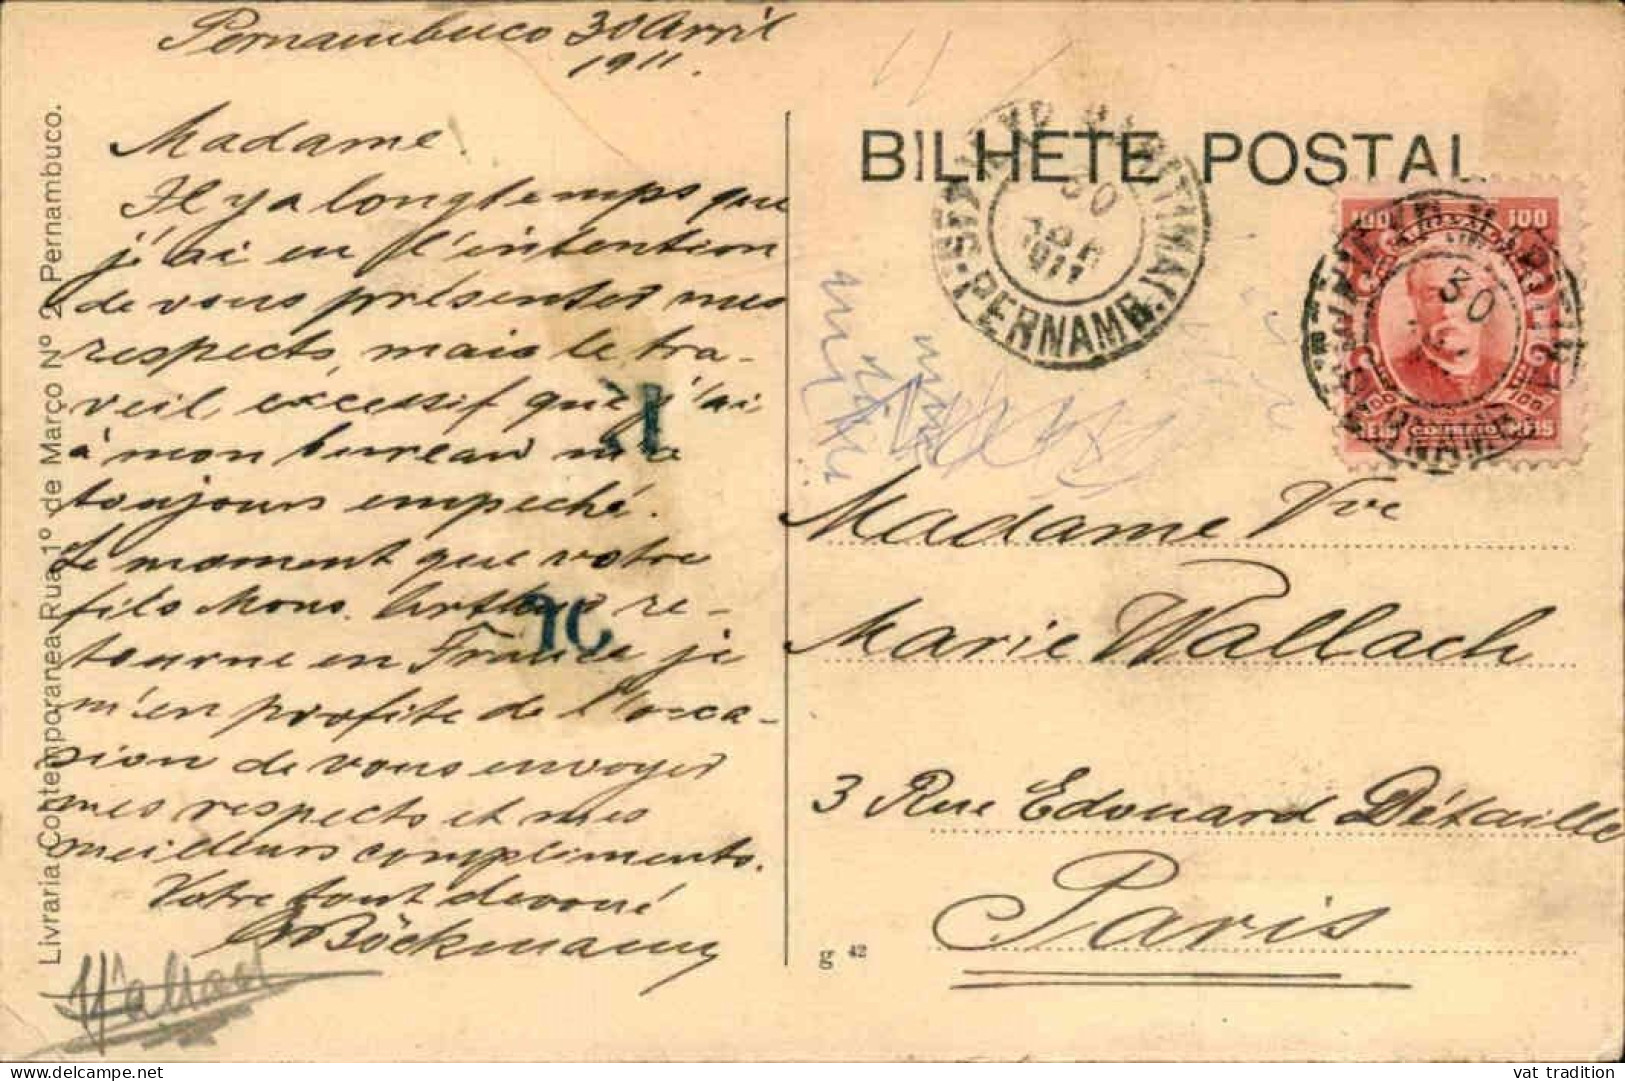 Pernambuco 30 Avril
1911.
Madame.
Il y a longtemps que
j'ai eu l'intention
de vous présenter mes
respects, mais le tra-
vail excessif que j'ai
à mon bureau m'a
toujours empeché.
Le moment que votre
fils Mons. Arthur re-
tourne en France je
m'en profite de l'occa-
sion de vous envoyer
mes respects et mes
meilleurs compliments.
Votre tout devoué
Böckmann
Wallach
Livraria Contemporanea Rua 1º de Março Nº 2 Pernambuco.
BILHETE POSTAL
30
1911
PERNAMB.
100 100
30
CORREIO
REIS REIS
Madame Vve
Marie Wallach
3 Rue Edouard Détaille
Paris
g 42
vat tradition